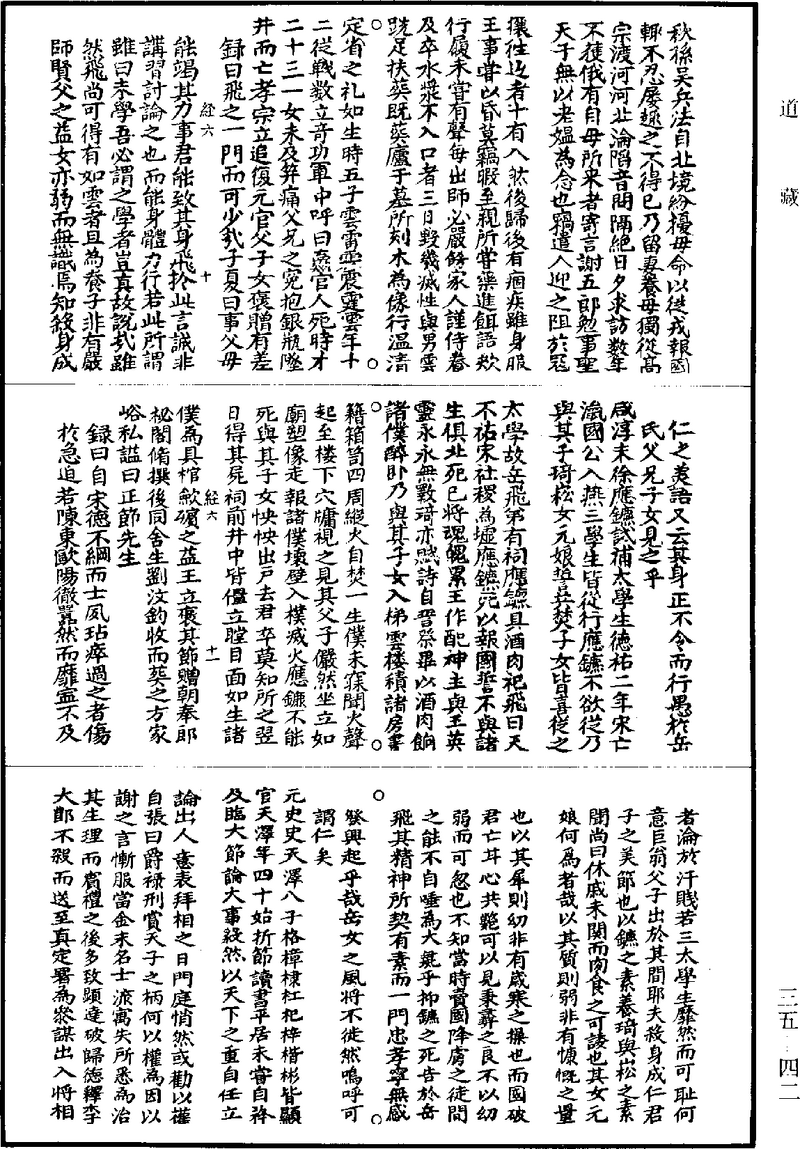 道藏
秋孫吳兵法自北境紛擾毋命以從戎報國
輙不忍屢趣之不得已乃留妻養母獨從高
宗渡河河北淪陷音問隔絕日夕求訪數年
不獲俄有自毋所来者寄言謝五郎勉事聖
天子無以老媪為念也竊遣人迎之阻於冦
攘往返者十有八然後歸後有痼疾雖身服
王事嘗以昏莫竊暇至親所嘗藥進餌語欬
行履未嘗有聲每出師必嚴飭家人謹侍養
及卒水漿不入口者三日毀幾滅性與男雲
跣足扶葬既葬廬于墓所刻木為像行温清
定省之礼如生時五子雲雷霖震霆雲年十
二從戰數立奇功軍中呼曰嬴官人死時才
二十三一女未及笄痛父兄之寃抱銀瓶墜
井而亡孝宗立追復元官父子女褒贈有差
録曰飛之一門而可少哉子夏曰事父毋
經六 十
能竭其力事君能致其身飛於此言誠非
講習討論之也而能身體力行若此所謂
雖曰未學吾必謂之學者豈真故說哉雖
然飛尚可得有如雲者且為養子非有嚴
師賢父之益女亦弱而無識焉知殺身成
仁之美語又云其身正不令而行愚於岳
氏父兄子女見之乎
咸淳末徐應鑣試補太學生德祐二年宋亡
瀛國公入燕三學生皆從行應鑣不欲從乃
與其子琦崧女元娘誓共焚子女皆喜從之
太學故岳飛第有祠應鑣具酒肉祀飛曰天
不祐宋社稷為墟應鑣死以報國誓不與諸
生俱北死已將魂魄累王作配神主與王英
靈永永無斁琦亦賦詩自誓祭畢以酒肉餉
諸僕醉卧乃與其子女入梯雲樓積諸房書
籍箱笥四周縱火自焚一生僕未寐聞火聲
起至樓下穴牖視之見其父子儼然坐立如
廟塑像走報諸僕壞壁入撲滅火應鑣不能
死與其子女怏怏出户去君卒莫知所之翌
日得其屍祠前井中皆僵立瞠目面如生諸
經六 十一
僕為具棺歛殯之益王立褒其節贈朝奉郎
祕閣脩撰後同舍生劉汶鈞收而葬之方家
峪私謚曰正節先生
録曰自宋德不綱而士夙玷瘁過之者傷
於急迫若陳東歐陽徹嚚然而靡寍不及
者淪於汗賤若三太學生靡然而可耻何
意巨翁父子出於其間耶夫殺身成仁君
子之美節也以鑣之素養琦與崧之素
聞尚曰休戚未関而肉食之可諉也其女元
娘何為者哉以其質則弱非有慷慨之量
也以其犀則幼非有歲寒之操也而國破
君亡耳心共斃可以見秉彞之良不以幼
弱而可忽也不知當時賣國降虜之徒間
之能不自唾為犬彘乎抑鑣之死告於岳
飛其精神所契有素而一門忠孝寧無感
發興起乎哉岳女之風將不徒然嗚呼可
謂仁矣
元史史天澤八子格樟棣杠杞梓楷彬皆顯
官天澤年四十始折節讀書平居未嘗自矜
及臨大節論大事毅然以天下之重自任立
論出人意表拜相之日門庭悄然或勸以權
自張曰爵禄刑賞天子之柄何以權為因以
謝之言慚服當金末名士流寓失所悉為治
其生理而賓禮之後多致顕達破歸德釋李
大節不殺而送至真定署為叅謀出入將相
三五—四二